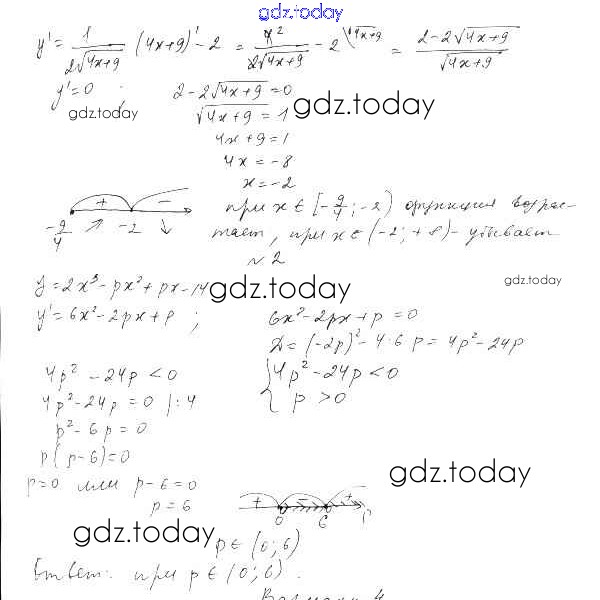 gdz.today
y' = 1/(2√(4x+9)) (4x+9)' - 2 = 4²/(2√(4x+9)) - 2\√(4x+9) = (2-2√(4x+9))/√(4x+9)
y'=0 ; 2-2√(4x+9)=0
gdz.today
√(4x+9) = 1
gdz.today
4x+9=1
4x=-8
x=-2
+ -
-9/4 ↗ -2 ↘
при x ∈ [-9/4; -2) функция возрас-
тает, при x ∈ (-2; +∞) - убывает
N 2
y=2x³-px²+px-14
gdz.today
gdz.today
y'=6x²-2px+p ; 6x²-2px+p=0
Д=(-2p)²-4·6p=4p²-24p
4p²-24p<0
{4p²-24p<0
p>0
4p²-24p=0 |:4
p²-6p=0
p(p-6)=0
p=0 или p-6=0
p=6
gdz.today
+ - +
0 6 p
gdz.today
p∈(0;6)
Ответ: при p∈(0;6).